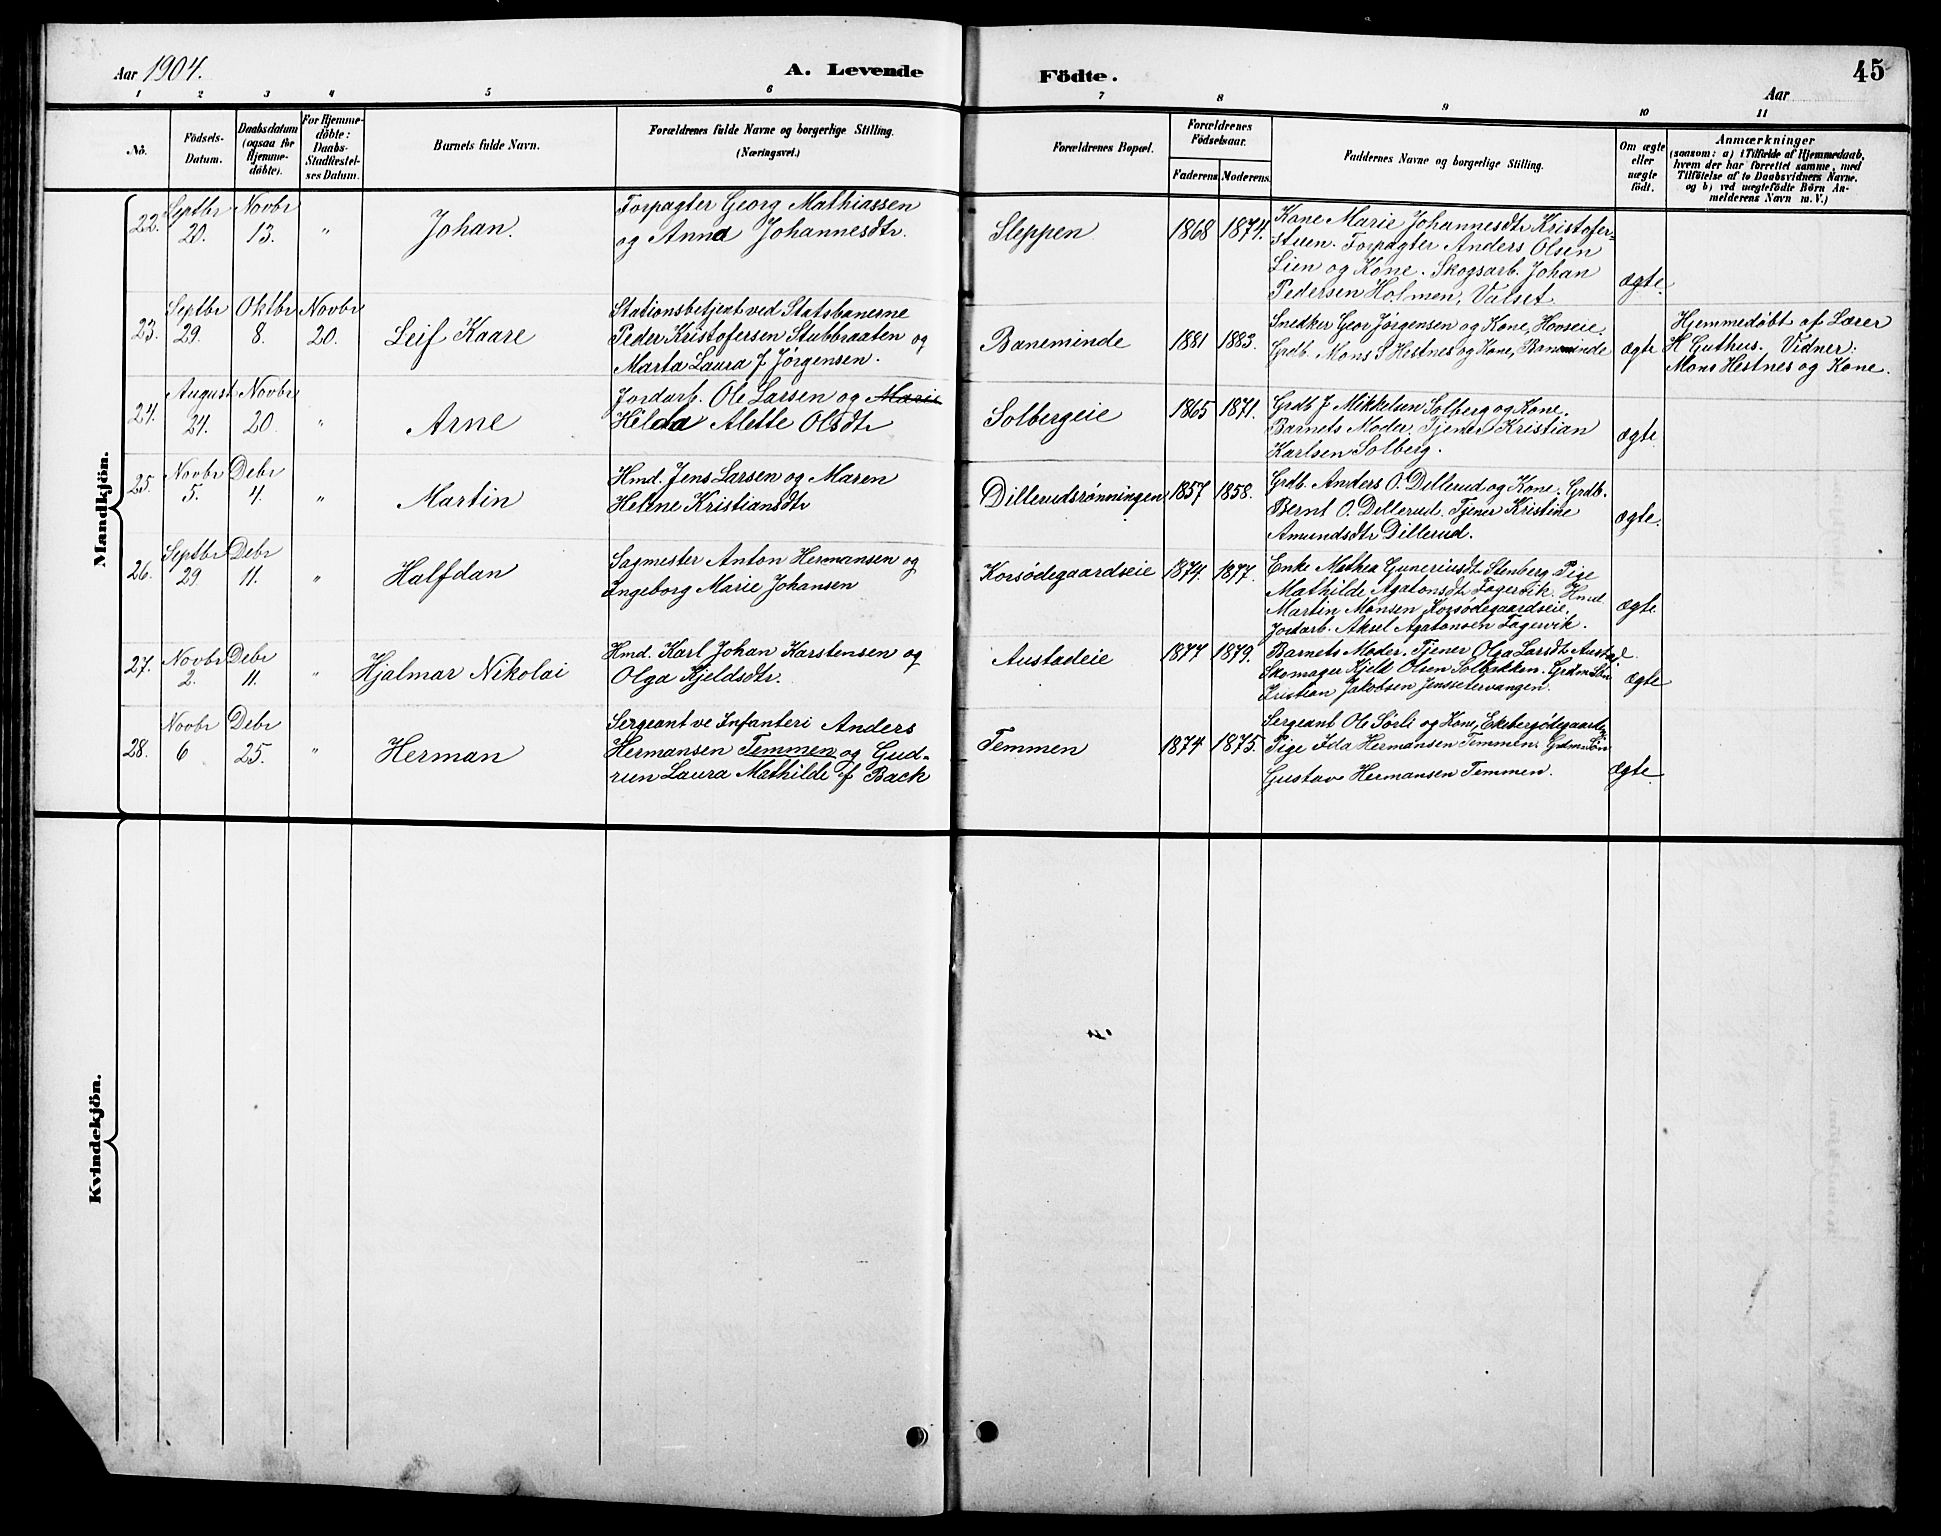 Aar 1904.
A. Levende
Födte.
45
Aar
1 2 3 4 5 6 7 8 9 10 11
No.
Födsels-
Datum.
Daabsdatum
(ogsaa for
Hjemme-
döbte).
For Hjemme-
döbte:
Daabs-
Stadfæstel-
ses Datum.
Barnets fulde Navn.
Forældrenes fulde Navne og borgerlige Stilling.
(Næringsvei.)
Forældrenes Bopæl.
Forældrenes
Födselsaar.
Faderens. Moderens.
Faddernes Navne og borgerlige Stilling.
Om ægte
eller
uægte
født.
Anmærkninger
(saasom: a) i Tilfælde af Hjemmedaab,
hvem der har forrettet samme, med
Tilföielse af to Daabsvidners Navne,
og b) ved uægtefödte Börn An-
melderens Navn m. V.)
Mandkjön.
22.
Septbr
20.
Novbr
13.
"
Johan.
Forpagter Georg Mathiassen
og Anna Johannesdtr.
Sleppen
1868
1874.
Kone Marie Johannesdtr Kristofer-
stuen. Forpagter Anders Olsen
Lien og Kone. Skogsarb. Johan
Pedersen Holmen, Valset.
Ægte.
23.
Septbr
29.
Oktbr
8.
Novbr
20.
Leif Kaare
Stationsbetjent ved Statsbanerne
Peder Kristofersen Stubbraaten og
Marta Laura J. Jørgensen.
Baneminde
1881
1883.
Snedker Geor Jørgensen og Kone, Hovseie.
Grdb. Mons S Hestnes og Kone, Baneminde
Ægte
Hjemmedøbt af Lærer
H Guthus. Vidner:
Mons Hestnes og Kone.
24.
August
24.
Novbr
20.
"
Arne
Jordarb. Ole Larsen og Marie
Hilda Alette Olsdtr
Solbergeie
1865
1871.
Grdb J. Mikkelsen Solberg og Kone.
Barnets Moder. Tjener Kristian
Karlsen Solberg.
Ægte.
25.
Novbr
5.
Debr
4.
"
Martin
Hmd. Jens Larsen og Maren
Helene Kristiansdtr
Dillerudsrønningen
1857
1858.
Grdb. Anders O. Dellerud og Kone. Grdb.
Bernt O. Dellerud. Tjener Kristine
Amundsdtr Dillerud.
Ægte.
26.
Septbr
29
Debr
11.
"
Halfdan
Sagmester Anton Hermansen og
Ingeborg Marie Johansen
Korsødegaardseie
1874.
1877.
Enke Mathea Guneriusdt. Stenberg. Pige
Mathilde Agatonsdt. Fagervik. Hmd.
Martin Monsen Korsødegaardseie,
Jordarb. Aksel Agatonsen Fagervik.
Ægte.
27.
Novbr
2.
Debr
11.
"
Hjalmar Nikolai
Hmd. Karl Johan Karstensen og
Olga Kjeldsdtr.
Austadeie
1877
1879.
Barnets Moder. Tjener Olga Larsdt Austad.
Skomager Kjeld Olsen Solbakken. Grdm. Søn
Kristian Jakobsen Jenssetervangen.
Ægte
28.
Novbr
6
Debr
25.
"
Herman
Sergeant ve Infanteri Anders
Hermansen Temmen og Gud-
run Laura Mathilde f Back
Temmen
1874
1875.
Sergeant Ole Sørli og Kone,
Pige Ida Hermansen Temmen. Grdm. Søn
Gustav Hermansen Temmen.
Ægte.
Kvindekjön.